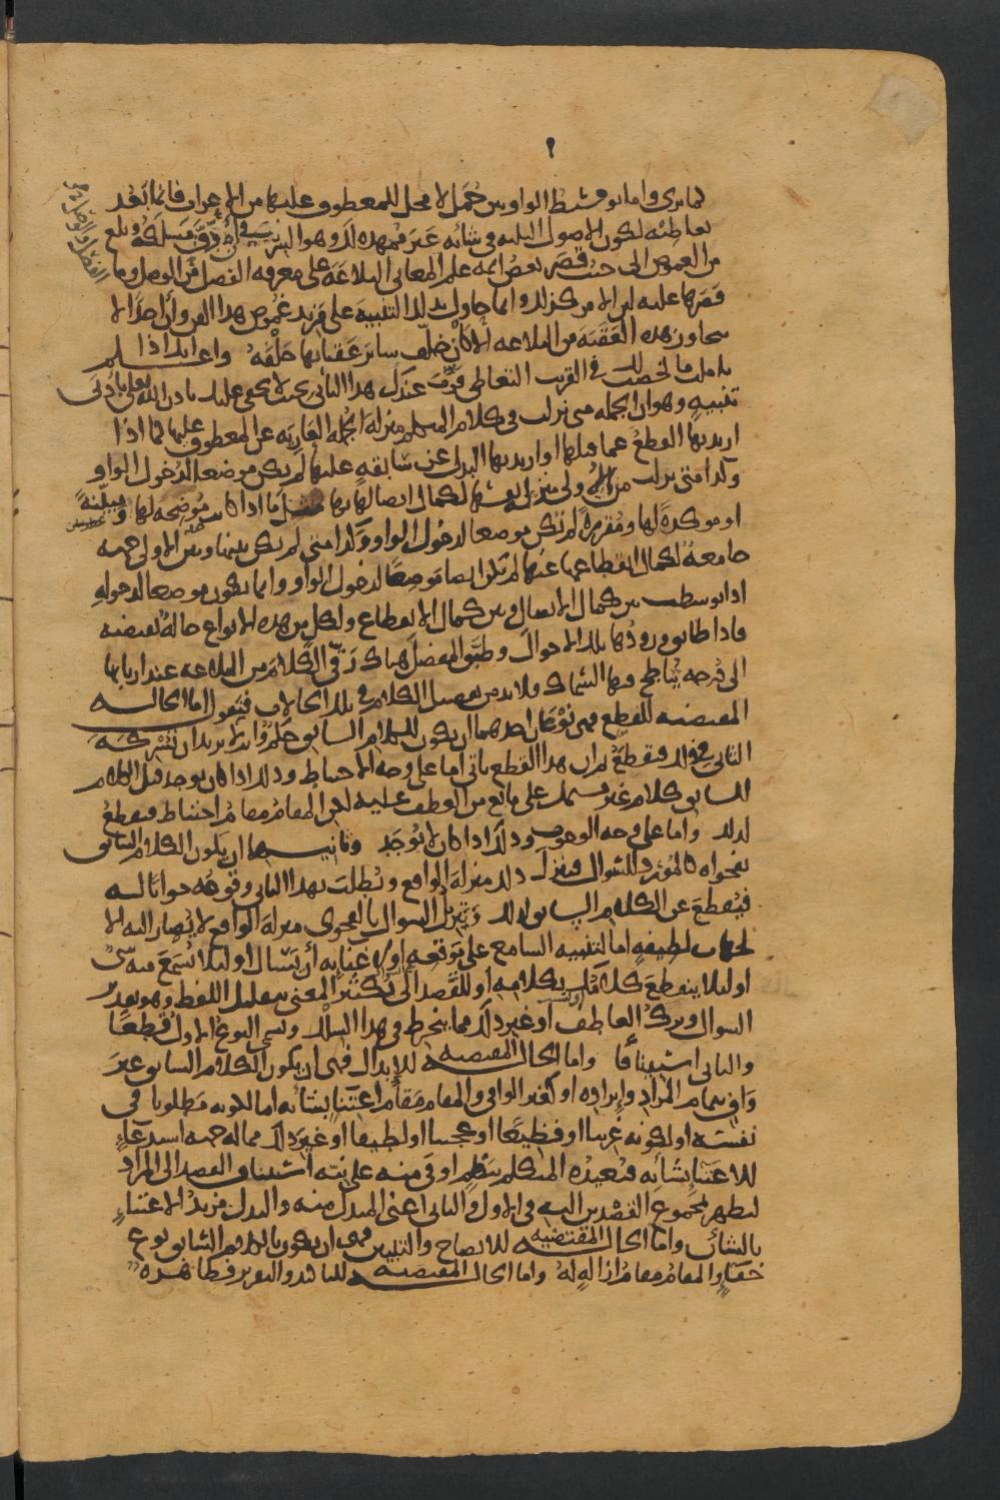 كما ترى واما نوع توسط الواو بين جمل لا محل للمعطوف عليها من الإعراب فانما بعد
تعاطيه لكون الاصول الثلثه في شأنه غير ممهده لك وهو السر في أن دق مسلكه وبلغ
من الغموض الى حيث قصر بعض ايمه علم المعاني البلاغة على معرفه الفصل والوصل وما
قصرها عليه لان الامر كذلك وانما حاول بذلك التنبيه على مزيد غموض هذا الفن وأن احدًا لا
يتجاوز هذه العقبة من البلاغه الا كان خلّف سائر عقباتها خلفه واعلم انك اذا
تاملت ما لخصت لك في القريب التعاطي قرّب عندك هذا الثاني بحيث لا يخفى عليك باذن الله تعالى بادنى
تنبيه وهو ان الجمله متى نزلت في كلام المتكلم منزلة الجمله العارية عن المعطوف عليها كما اذا
اريد بها القطع عما قبلها او اريد بها البدل عن سابقة عليها لم يكن موضعا لدخول الواو
وكذا متى نزلت من الاولى منزلة نفسها لكمال اتصالها بها مثل ما اذا كانت موضحه لها ومبيّنةً
او موكدةً لها ومقررةً لم تكن موضعا لدخول الواو وكذا متى لم يكن بينها وبين الاولى جهه
جامعة لكمال انقطاعها عنها لم تكن ايضا موضعًا لدخول الواو وانما يكون موضعا لدخوله
اذا توسطت بين كمال الاتصال وبين كمال الانقطاع ولكل من هذه الانواع حالة تقتضيه
فاذا طابق ورودها تلك الاحوال وطبّق المفصل هناك رقّي الكلام من البلاغه عند اربابها
الى درجه يُناطح فيها السماك ولا بد من تفصيل الكلام في تلك الحالات فنقول اما الحاله
المقتضيه للقطع فهي نوعان احدهما ان يكون للكلام السابق حكم وانت لا تريد ان تشركه
الثاني في ذلك فتقطع ثم ان هذا القطع ياتي اما على وجه الاحتياط وذلك اذا كان يوجد قبل الكلام
السابق كلام غير مشتمل على مانع من العطف عليه لكن المقام مقام احتياط فيقطع
لذلك واما على وجه الوجوب وذلك اذا كان لا يوجد وثانيهما ان يكون الكلام السابق
بفحواه كالمورد للسؤال فتنزل ذلك منزلة الواقع ويُطلب بهذا الثاني وقوعه جوابًا له
فيُقطع عن الكلام السابق لذلك وتنزيل السؤال بالفحوى منزلة الواقع لا يُصار اليه الا
لجهات لطيفه اما لتنبيه السامع على موقعه او لاغنائه أن يَسأل او لئلا يُسمع منه شيء
او لئلا ينقطع كلامك بكلامه او للقصد الى تكثير المعنى بتقليل اللفظ وهو تقدير
السؤال وترك العاطف او غير ذلك مما ينخرط في هذا السلك ويسمى النوع الاول قطعًا
والثاني استينافًا واما الحاله المقتضيه للابدال فهي ان يكون الكلام السابق غير
واف بتمام المراد وايراده او كغير الوافي والمقام مقام اعتناءٍ بشأنه اما لكونه مطلوبا في
نفسه او لكونه غريبا او فظيعًا او عجيبا او لطيفا او غير ذلك مما له جهه استدعاءٍ
للاعتناءِ بشأنه فيعيده المتكلم بنظم اوفى منه على نيّه استيناف القصد الى المراد
ليظهر بمجموع القصدين اليه في الاول والثاني اعني المبدل منه والبدل مزيدُ الاعتناءِ
بالشأن واما الحاله المقتضيه للايضاح والتبيين فهي ان يكون بالكلام السابق نوع
خفاءٍ والمقام مقام ازاله له واما الحاله المقتضيه للتاكيد والتقرير فظاهرة
الفصل والوصل